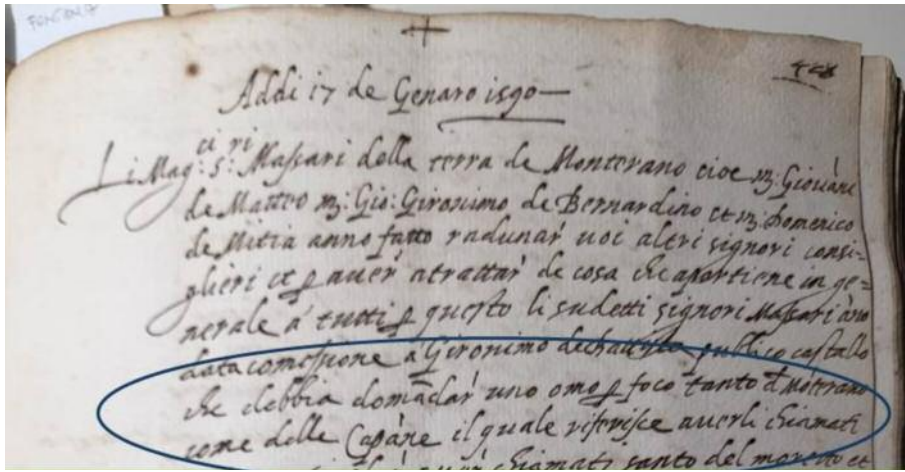 Addi 17 de Genaro 1590
428
Li Mag:ci S:ri Massari della terra de Monterano cioe m: Giovane
de Matteo m: Gio: Gironimo de Bernardino et m: Domenico
de Mitia anno fatto radunar' uoi altri signori consi=
glieri et p auer' atrattar' de cosa che apartiene in ge=
nerale a' tutti p questo li sudetti signori Massari ano
data comessione a' Gironimo publico castallo
che debbia domādar' uno omo p foco tanto de Mōterano
come delle Capāne il quale riferisce auerli chiamati
chiamati santo del moretto et